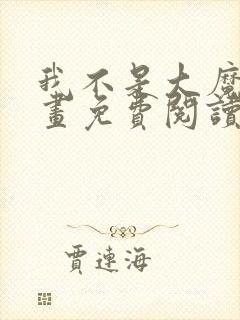 我不是大魔
畫免費閱讀
賈連海